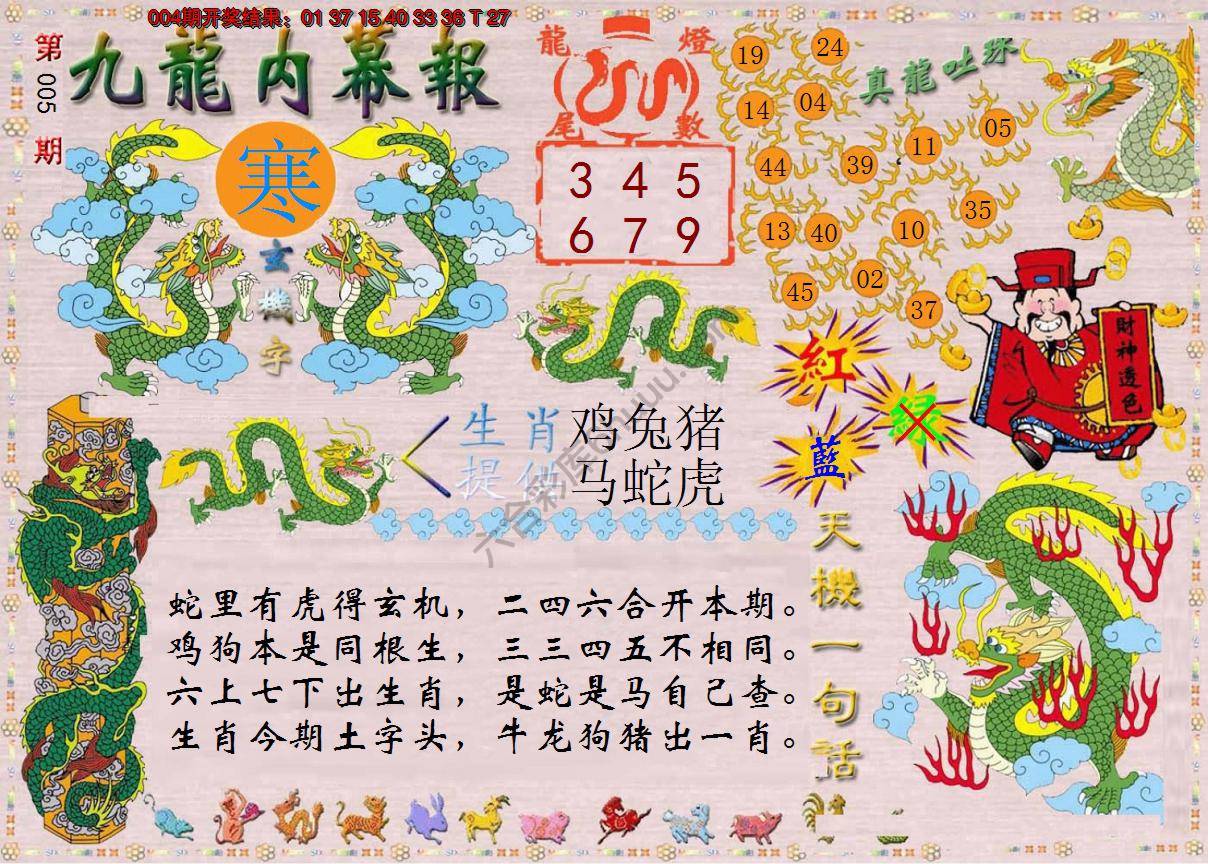 004期开奖结果：01 37 15 40 33 36 T 27
第005期
九龍内幕報
寒
玄機字
龍燈
尾數
3 4 5
6 7 9
真龍吐珠
19 24
14 04
44 39 11 05
13 40 10 35
45 02 37
財神透色
紅
绿
藍
生肖 鸡兔猪
提供 马蛇虎
六合彩库
天機一句話
蛇里有虎得玄机，二四六合开本期。
鸡狗本是同根生，三三四五不相同。
六上七下出生肖，是蛇是马自己查。
生肖今期土字头，牛龙狗猪出一肖。